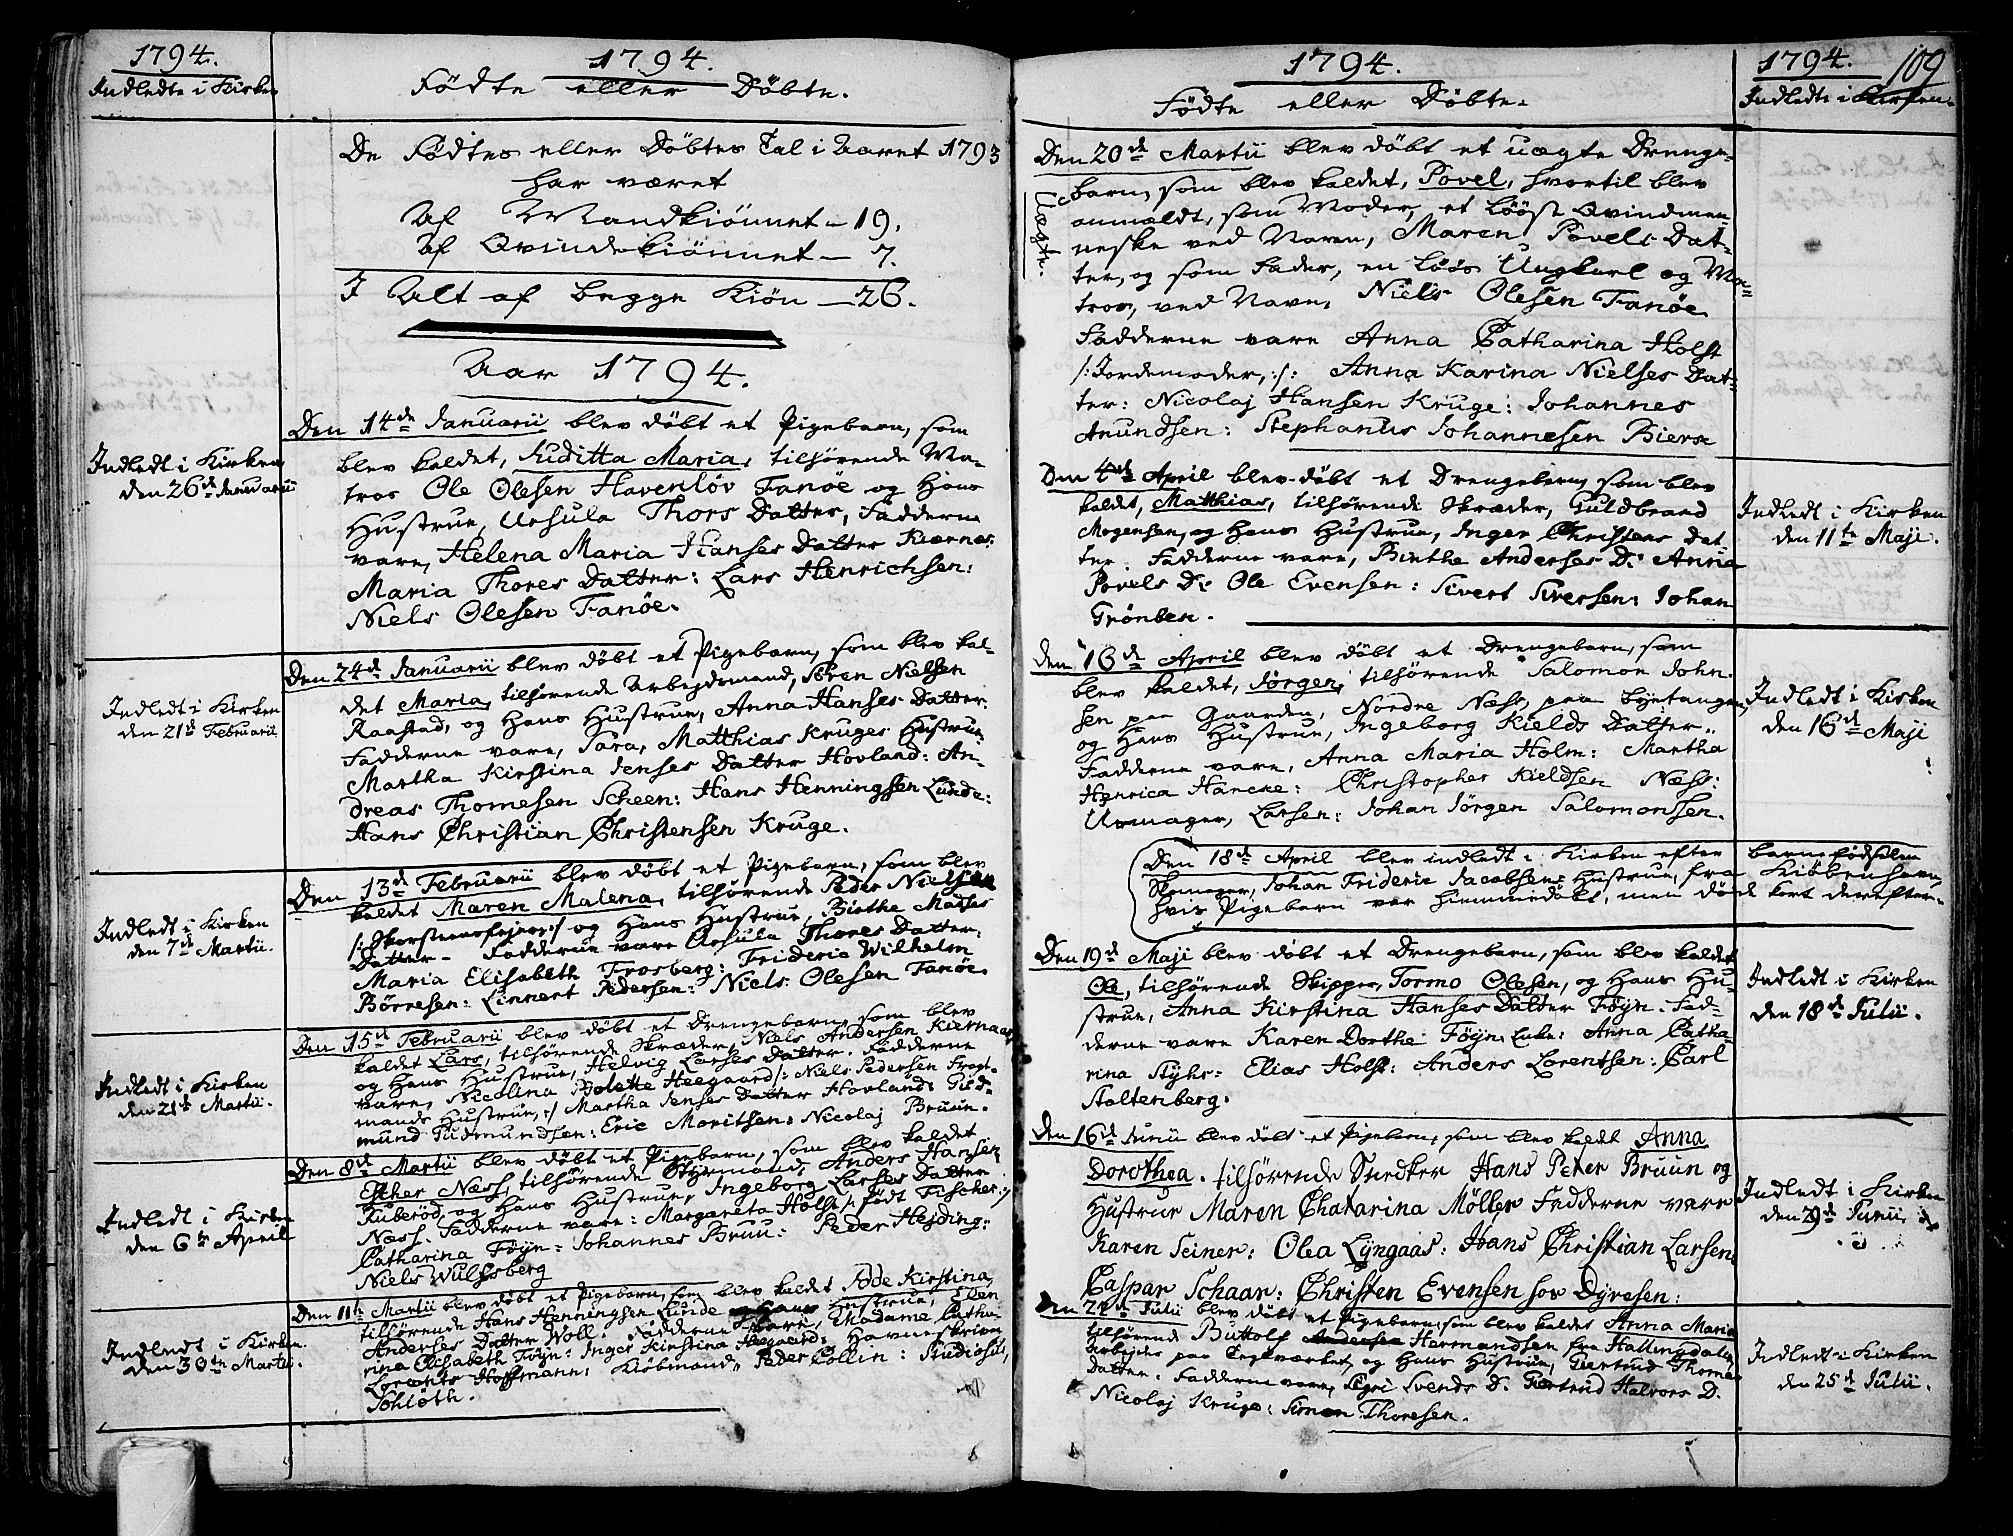 1794.
Indledte i Kirken
1794.
Fødte eller Døbte.
De Fødtes eller Døbtes Tal i Aaret 1793
har været
Af Mandkiönnet - 19.
Af Qvindekiönnet - 7.
I Alt af begge Kiön - 26.
Aar 1794.
Den 14de Januarii blev döbt et Pigebarn, som
blev kaldet, Juditta Maria, tilhörende Ma-
tros Ole Olesen Havenlöv Fanöe og Hans
Hustrue, Ursula Thors Datter, Fadderne
vare, Helena Maria Hanses Datter Kiærnes:
Maria Thores Datter: Lars Henrichsen:
Niels Olesen Fanöe.
Indledt i Kirken
den 26de Januarii
Den 24de Januarii blev döbt et Pigebarn, som blev kal-
det Maria, tilhörende Arbejdsmand, Sören Nielsen
Raastad, og Hans Hustrue, Anna Hanses Datter.
Fadderne vare, Sara, Matthias Kruges Hustrue
Martha Kirstina Jenses Datter Hovland: An-
dreas Thomesen Scheen: Hans Henningsen Lunde:
Hans Christian Christensen Kruge.
Indledt i Kirken
den 21de Februarii
Den 13de Februarii blev döbt et Pigebarn, som blev
kaldet Maren Malena, tilhörende Peder Nielsen
/:Skorsteensfejer:/ og Hans Hustrue, Birthe Madses
Datter - Fadderne vare Ursula Thores Datter:
Maria Elisabeth Frosberg: Frideric Wilhelm
Börresen: Linnert Pedersen: Niels Olesen Fanöe.
Indledt i Kirken
den 7de Martii.
Den 15de Februarii blev döbt et Drengebarn, som blev
kaldet Lars, tilhörende Skræder, Niels Andersen Kiernaas,
og Hans Hustrue, Helvig Larses Datter. Fadderne
vare, Nicolina Bolette Heegaard /: Niels Pedersen Fragt-
mands Hustrue, :/ Martha Jenses Datter Hovland: Gud-
mund Gudmundsen: Eric Moritsen: Nicolaj Bruun.
Indledt i Kirken
den 21de Martii.
Den 8de Martii blev döbt et Pigebarn, som blev kaldet
Esther Næss, tilhörende Styrmand, Anders Hansen
Tuberöd, og Hans Hustrue, Ingeborg Larses Datter
Næss. Fadderne vare: Margareta Holst /: födt Fischer :/
Catharina Föyn: Johannes Bruu: Peder Hejding:
Niels Wulfsberg
Indledt i Kirken
den 6te April
Den 11te Martii blev döbt et Pigebarn, som blev kaldet Adde Kirstina,
tilhörende Hans Henningsen Lunde og Hans Hustrue, Ellen
Anderses Datter Woll. Fadderne vare, Madame Catha-
rina Elisabeth Föyn: Inger Kirstina Heegaard: Havneskriver
Lorents Hoffmann: Kiöbmand, Peder Collin: Studiosus,
Schlöth.
Indledt i Kirken
den 30te Martii.
1794.
Fødte eller Døbte.
1794.
109
Indledte i Kirken.
Den 20de Martii blev döbt et uægte Drenge-
barn, som blev kaldet, Povel, hvortil blev
anmeldt, som Moder, et löös Qvindmen-
neske ved Navn, Maren Povels Dat-
ter, og som Fader, en löös Ungkarl og Ma-
tros, ved Navn, Niels Olesen Fanöe
Fadderne vare Anna Catharina Holst
/: Jordemoder, :/: Anna Karina Nielses Dat-
ter: Nicolaj Hansen Kruge: Johannes
Anundsen: Stephanus Johannesen Bierke
Uægte.
Den 4de April blev döbt et Drengebarn, som blev
kaldet, Matthias, tilhörende Skræder, Guldbrand
Mogensen, og Hans Hustrue, Inger Christens Dat
ter. Fadderne vare, Birthe Anderses D: Anna
Povels D: Ole Evensen: Sivert Siversen: Johan
Grönbek.
Indledt i Kirken
den 11te Maji.
Den 16de April blev döbt et Drengebarn, som
blev kaldet, Jörgen, tilhörende Salomon John-
sen paa Gaarden, Nordre Næss, paa Byetangen,
og Hans Hustrue, Ingeborg Kields Datter..
Fadderne vare, Anna Maria Holm: Martha
Henrica Harcke: Christopher Kieldsen Næss:
Urmager, Larsen: Johan Jörgen Salomonsen.
Indledt i Kirken
den 16de Maji
Den 18de April blev indledt i Kirken efter barnefödselen
Skomager, Johan Frideric Jacobsens Hustrue, fra Kiöbenhavn,
hvis Pigebarn var hiemmedöbt, men döde kort derefter.
Den 19de Maji blev döbt et Drengebarn, som blev kaldet
Ole, tilhörende Skipper, Tormo Olesen, og Hans Hu-
strue, Anna Kirstina Hanses Datter Föyn. Fad-
derne vare Karen Dorthe Föyn, Enke: Anna Catha-
rina Styhr: Elias Holst: Anders Lorentsen: Carl
Stoltenberg.
Indledt i Kirken
den 18de Julii.
Den 16de Junii blev döbt et Pigebarn, som blev kaldet Anna
Dorothea. tilhörende Snedker Hans Peter Bruun og
Hustrue Maren Chatarina Möller Fadderne vare
Karen Seiner: Olea Lyngaas: Hans Christian Larsen
Caspar Schaar: Christen Evensen for Dyresen:
Indledt i Kirken
den 29de Junii
Den 22de Julii blev döbt et Pigebarn, som blev kaldet Anna Maria
tilhörende Buttolf Andersen Hermandsen fra Hallingdalen,
Arbejder paa Teglværket, og Hans Hustrue, Giertrud Thomæ
Datter. Fadderne vare, Sigri Svends D. Giertrud Halvors D.
Nicolaj Kruge: Simon Thoresen.
Indledt i Kirken
den 25de Julii.